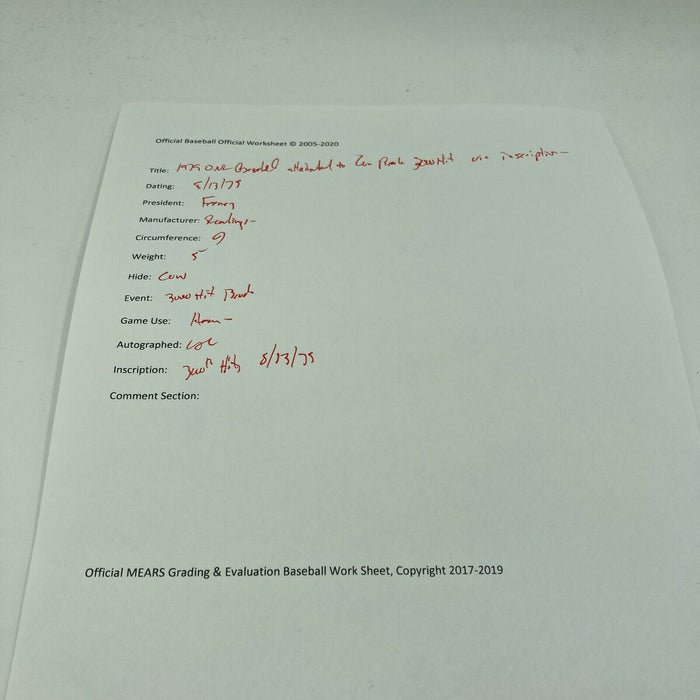 Official Baseball Official Worksheet © 2005-2020
Title: 1979 ONL Baseball attributed to Lou Brock 3000 Hit via inscription -
Dating: 8/13/79
President: Feeney
Manufacturer: Rawlings -
Circumference: 9
Weight: 5
Hide: Cow
Event: 3000 Hit Brock
Game Use:
Autographed: LOC
Inscription: 3000th Hit, 8/13/79
Comment Section:
Official MEARS Grading & Evaluation Baseball Work Sheet, Copyright 2017-2019